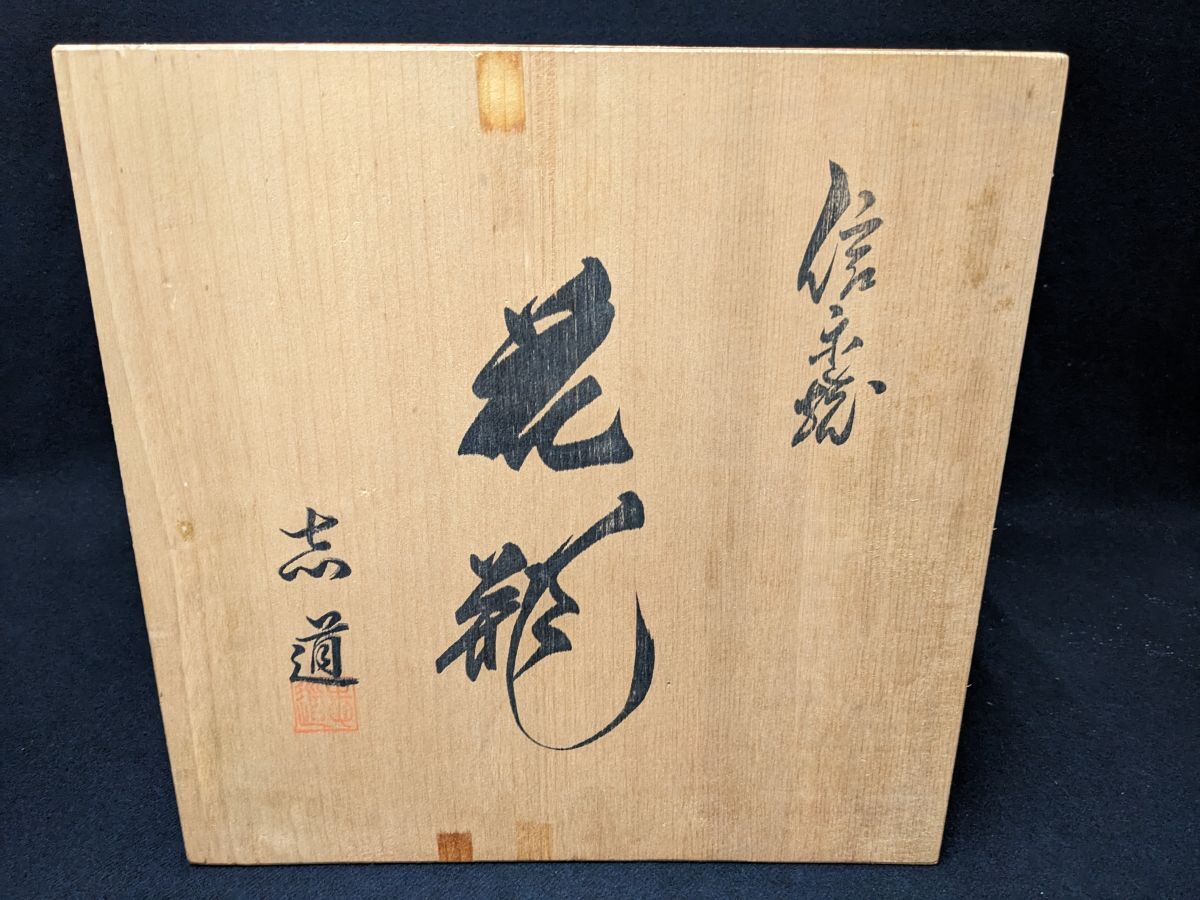 信楽焼
花瓶
志道